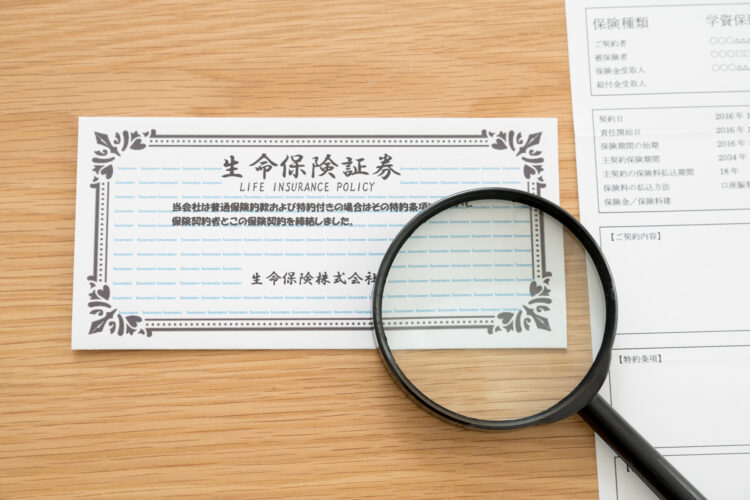 生命保険証券
LIFE INSURANCE POLICY
当会社は普通保険約款および特約付きの場合はその特約条項
保険契約者とこの保険契約を締結しました。
生命保険株式会社
保険種類 学資保
ご契約者 ○○○
被保険者 ○○○
保険金受取人 ○○○
給付金受取人
契約日 2016 年 1
責任開始日 2016 年 1
保険期間の始期 2016 年
主契約保険期間 2034 年
主契約の保険料払込期間 18 年
保険料の払込方法 口座振
保険金／保険料建
【ご契約内容】
【特約条項】